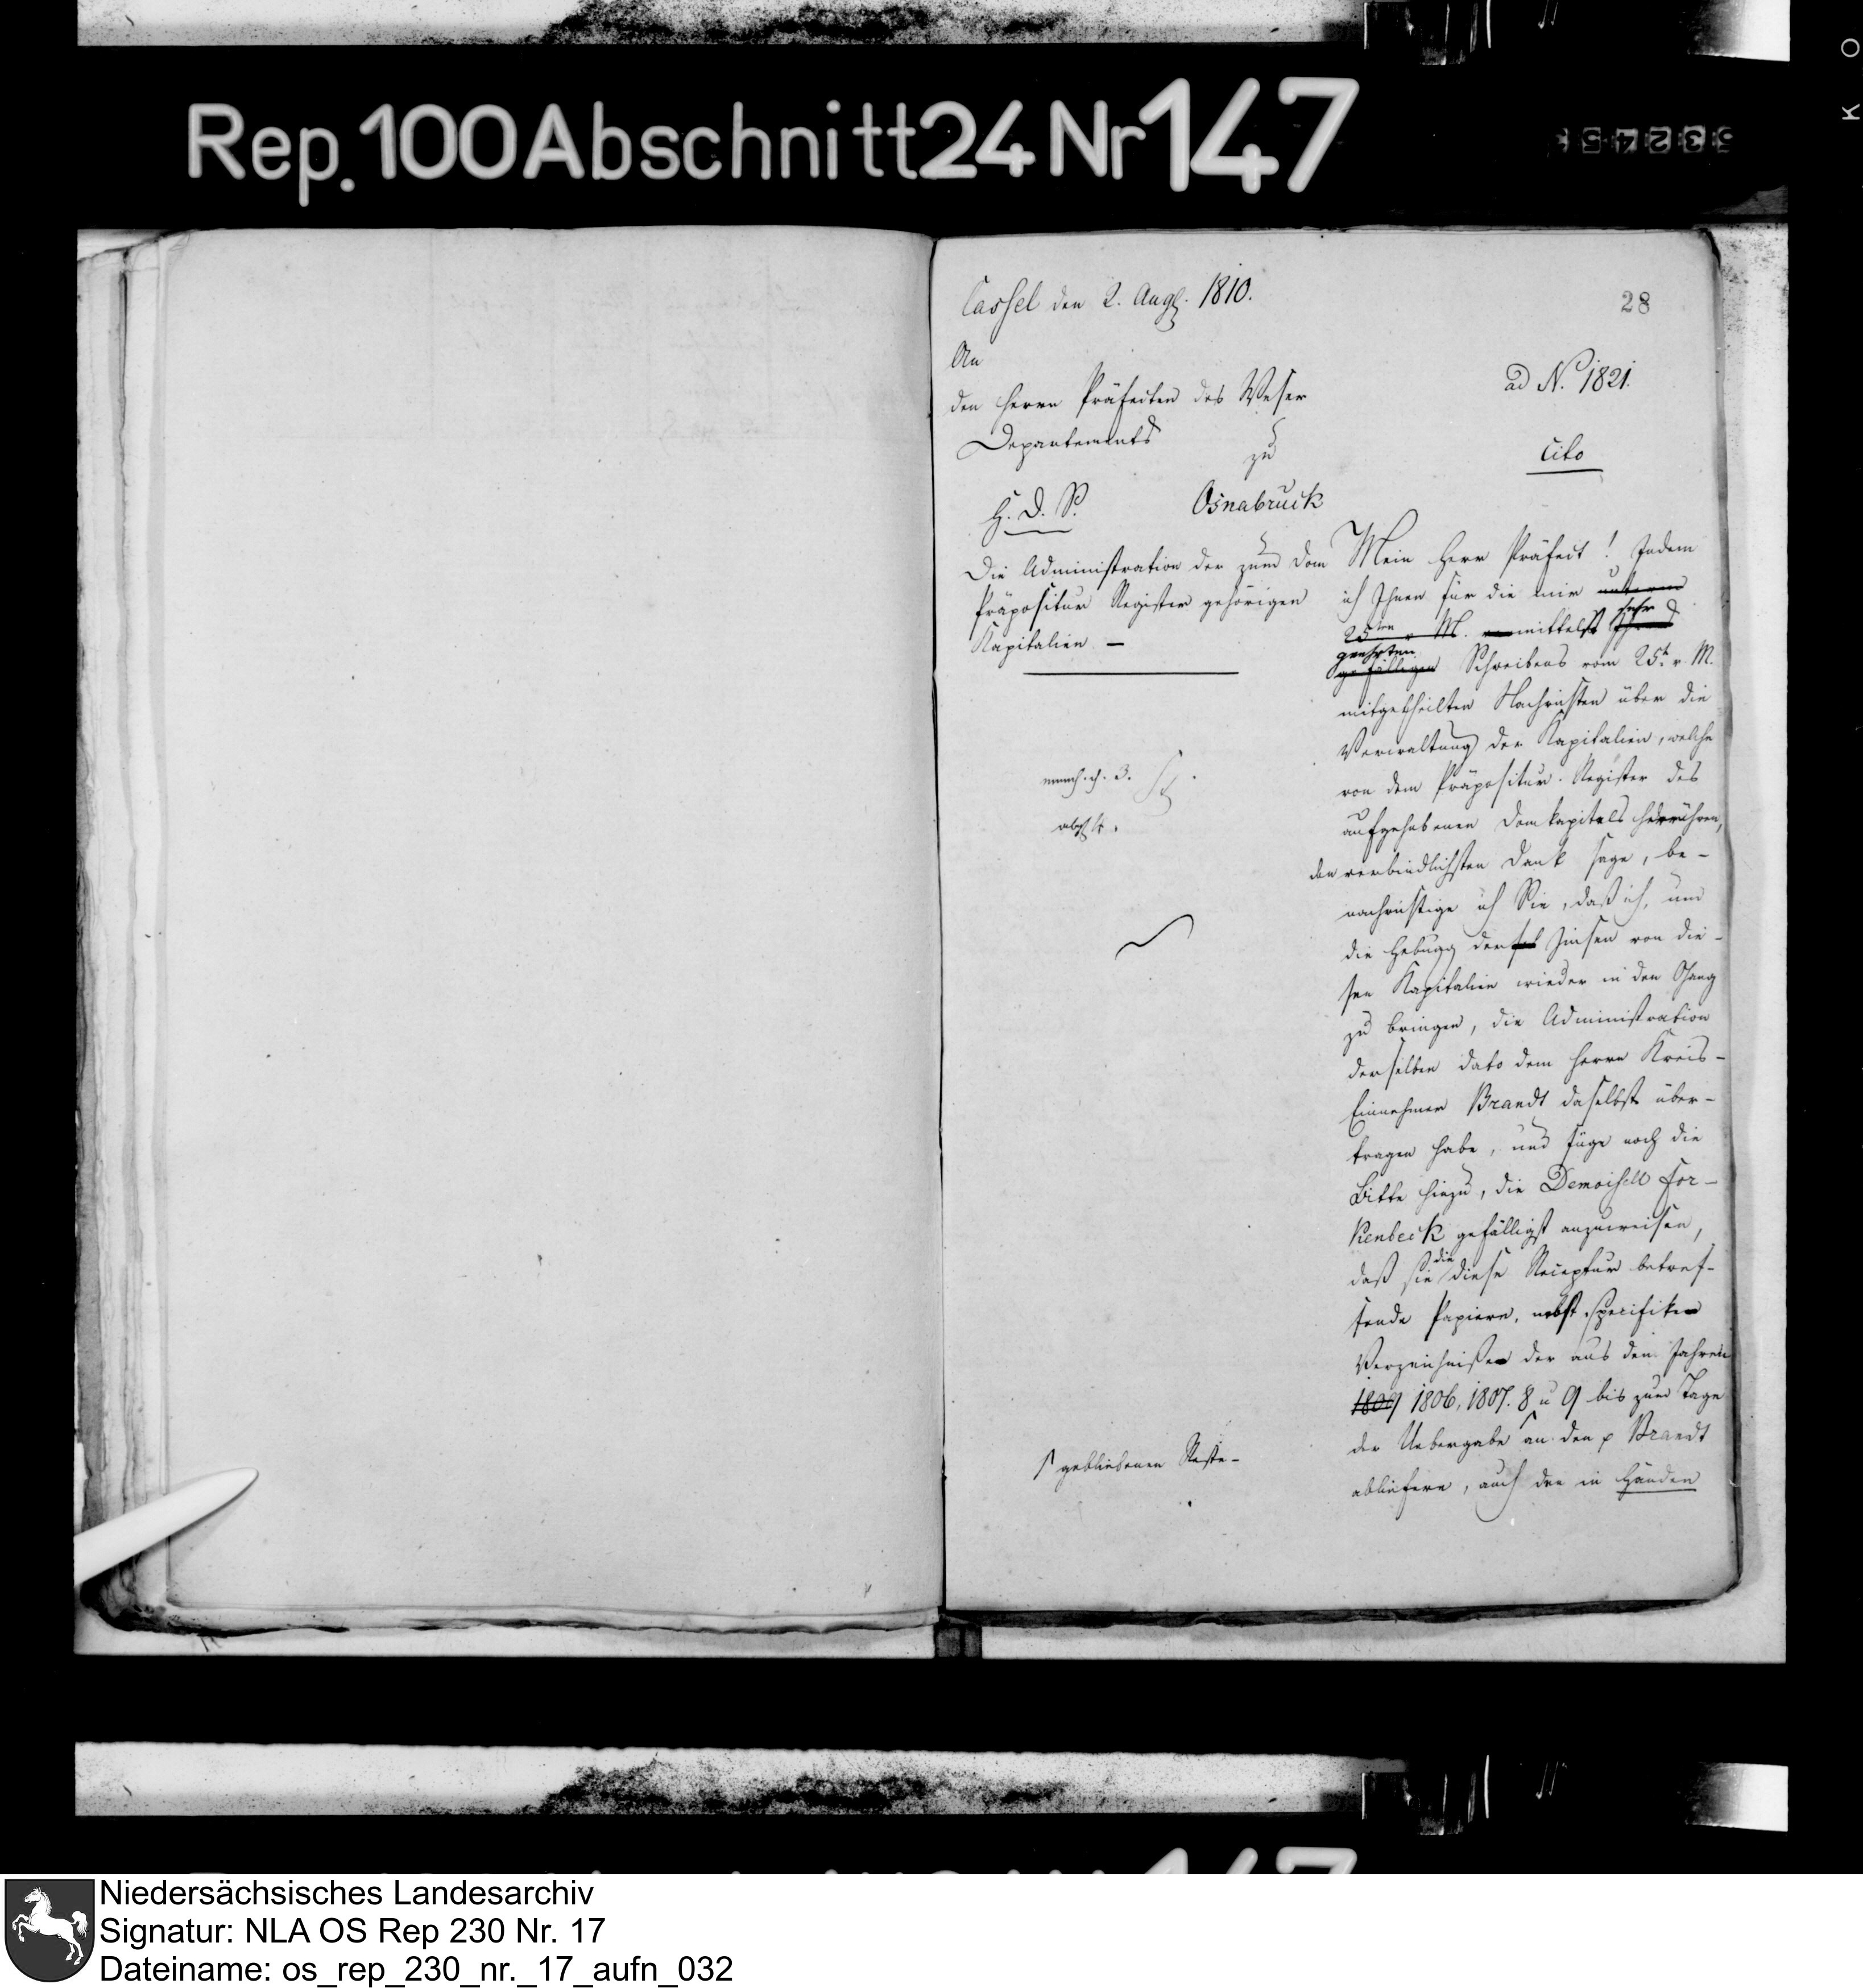 Rep. 100 Abschnitt 24 Nr 147
53245
K O
Cassel den 2. Augst. 1810.
28
An
den Herrn Präfecten des Weser
Departements
zu
Osnabruck
ad N. 1821.
Cito
H. D. P.
Die Administration der zum Dom
Präpositur Register gehörigen
Kapitalien —
abgl. 4.
Mein Herr Präfect! Indem
ich Ihnen für die mir unterm
25ten v. M. vermittelst sehr
geehrten
gefälligen Schreibens vom 25t. v. M.
mitgetheilten Nachrichten über die
Verwaltung der Kapitalien, welche
von dem Präpositur-Register des
aufgehobenen Domkapitels herrühren,
den verbindlichsten Dank sage, be-
nachrichtige ich Sie, daß ich, um
die Hebung der Zinsen von die-
sen Kapitalien wieder in den Gang
zu bringen, die Administration
derselben dato dem Herrn Kreis-
Einnehmer Brandt daselbst über-
tragen habe, und füge noch die
Bitte hinzu, die Demoisell For-
kenbeck gefälligst anzuweisen,
daß sie die diese Receptur betref-
fende Papiere, nebst specifiken
Verzeichnißen der aus den Jahren
1809 1806, 1807. 8 u 9 bis zum Tage
der Uebergabe an den p Brandt
abliefern, auch den in Händen
gebliebenen Reste-
Niedersächsisches Landesarchiv
Signatur: NLA OS Rep 230 Nr. 17
Dateiname: os_rep_230_nr._17_aufn_032